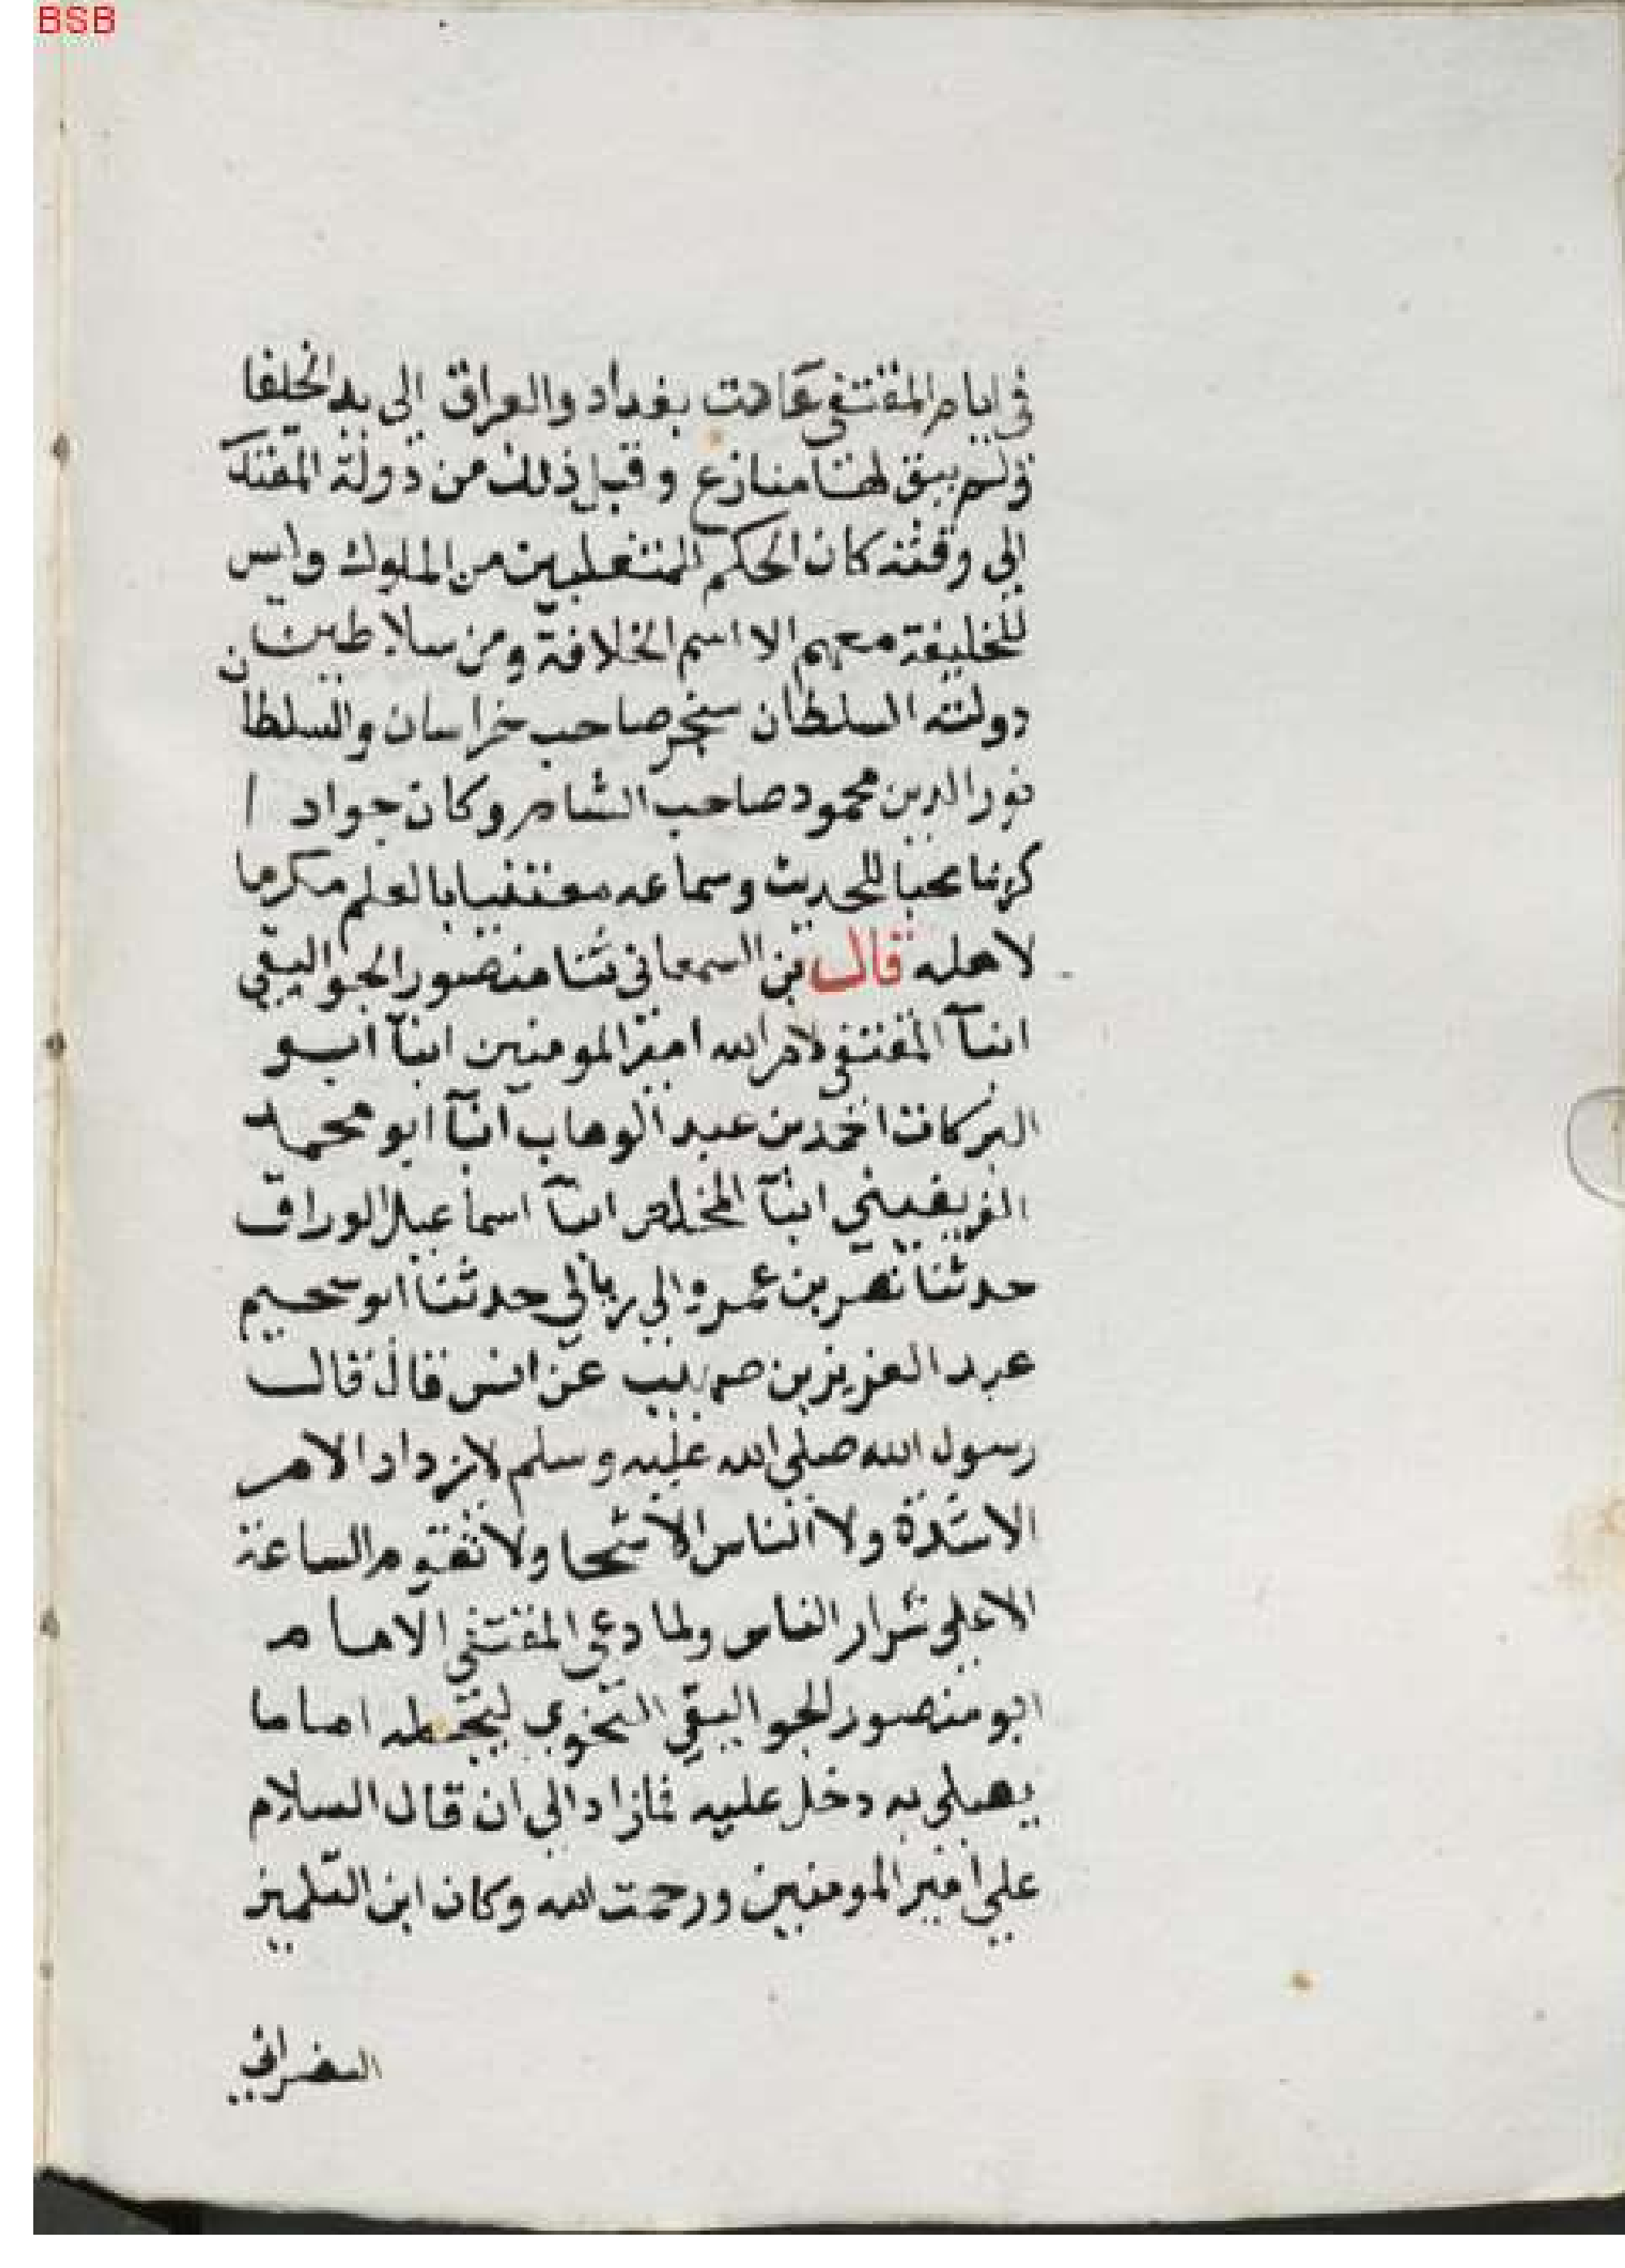 BSB
في ايام المقتفي عادت بغداد والعراق الى يد الخلفا
ولم يبق لها منازع وقبل ذلك من دولة المقتد
الي وقته كان الحكم المتغلبين من الملوك وليس
للخليفة معهم الا اسم الخلافة ومن سلاطين
دولته السلطان سنجر صاحب خراسان والسلطان
نور الدين محمود صاحب الشام وكان جواد ا
كريما محبا للحديث وسماعه معتنيا بالعلم مكرما
لاهله قال بن السمعاني ثنا منصور الجواليقي
انبآ المقتفي لامر الله امير المومنين انبآ ابو
البركات احمد بن عبد الوهاب انبآ ابو محمد
الفريفيني انبآ المخلص انبآ اسماعيل الوراق
حدثنا نصر بن عمرو الي ربالي حدثنا ابو سحيم
عبد العزيز بن صهيب عن انس قال قال
رسول الله صلي الله عليه وسلم لا يزداد الامر
الا شدة ولا الناس الا شحا ولا تقوم الساعة
الا علي شرار الناس ولما دعي المقتفي الامام
ابو منصور الجواليقي النحوي ليجعله اماما
يصلي به دخل عليه فما زاد الي ان قال السلام
علي امير المومنين ورحمت الله وكان ابن التلميذ
النصراني